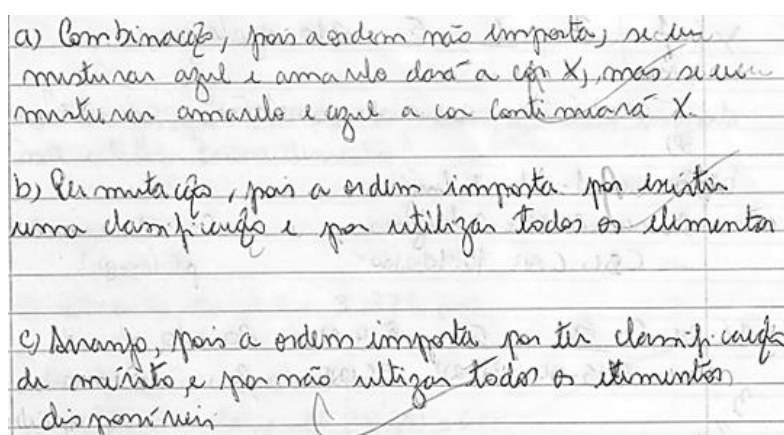 a) Combinação, pois a ordem não importa, se eu
misturar azul e amarelo dará a cor X, mas se eu
misturar amarelo e azul a cor continuará X.
b) Permutação, pois a ordem importa por existir
uma classificação e por utilizar todos os elementos
c) Arranjo, pois a ordem importa por ter classificação
de mérito, e por não utilizar todos os elementos
disponíveis